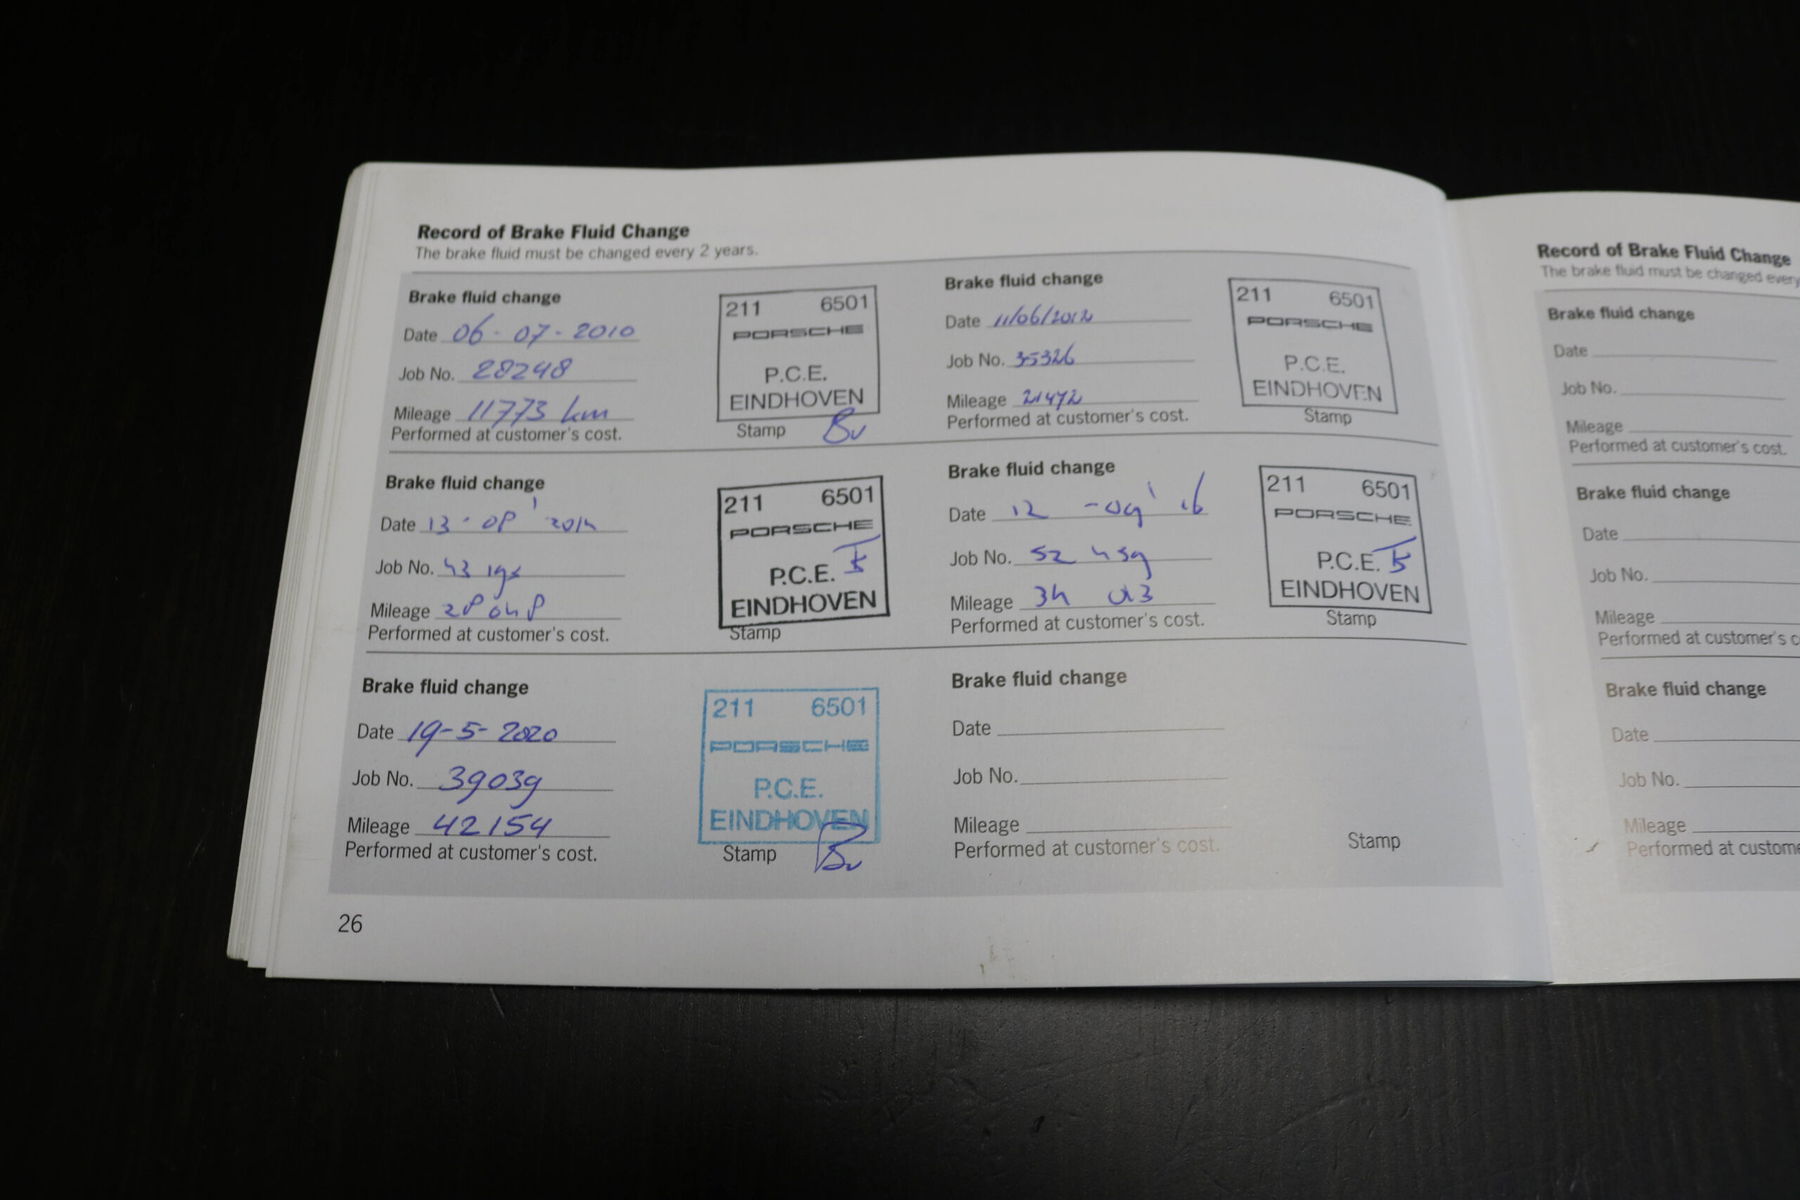 Record of Brake Fluid Change
The brake fluid must be changed every 2 years.
Brake fluid change
Date 06-07-2010
Job No. 28248
Mileage 11773 km
Performed at customer's cost.
211 6501
PORSCHE
P.C.E.
EINDHOVEN
Stamp
Brake fluid change
Date 11/06/2012
Job No. 35326
Mileage 21472
Performed at customer's cost.
211 6501
PORSCHE
P.C.E.
EINDHOVEN
Stamp
Brake fluid change
Date
Job No.
Mileage
Performed at customer's cost.
211 6501
PORSCHE
P.C.E.
EINDHOVEN
Stamp
Brake fluid change
Date 12-09'16
Job No. 52 459
Mileage
Performed at customer's cost.
211 6501
PORSCHE
P.C.E.
EINDHOVEN
Stamp
Brake fluid change
Date 19-5-2020
Job No. 39039
Mileage 42154
Performed at customer's cost.
211 6501
PORSCHE
P.C.E.
EINDHOVEN
Stamp
Brake fluid change
Date
Job No.
Mileage
Performed at customer's cost.
Stamp
26
Record of Brake Fluid Change
The brake fluid must be changed every
Brake fluid change
Date
Job No.
Mileage
Performed at customer's cost.
Brake fluid change
Date
Job No.
Mileage
Performed at customer's
Brake fluid change
Date
Job No.
Mileage
Performed at